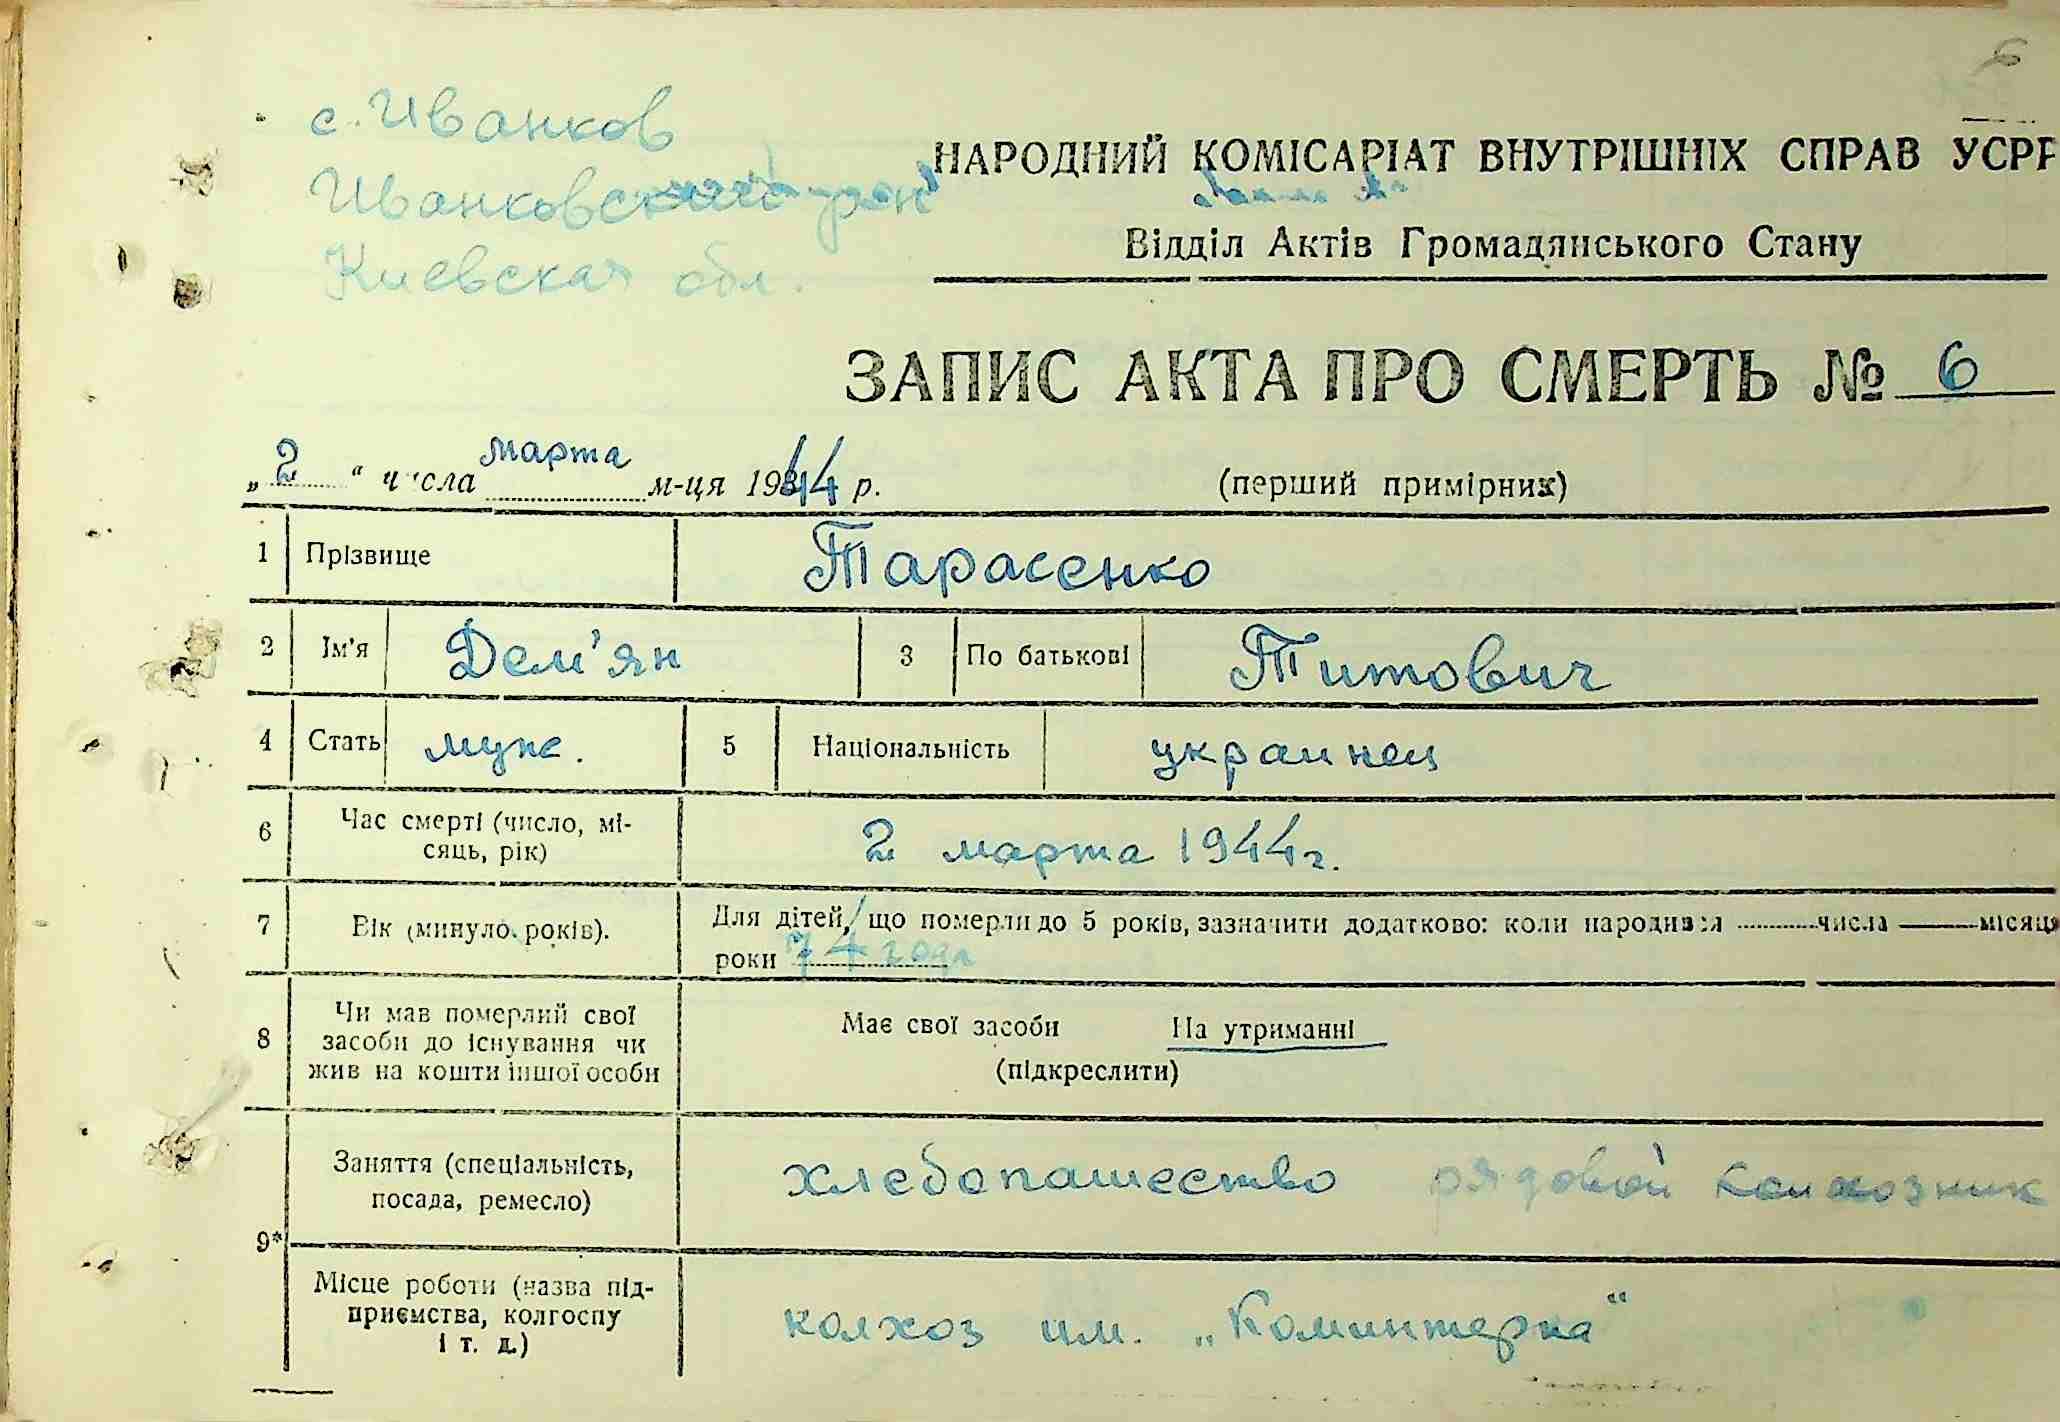 6
с. Иванков
Иванковский рон
Киевская обл.
НАРОДНИЙ КОМІСАРІАТ ВНУТРІШНІХ СПРАВ УСРР
Відділ Актів Громадянського Стану
ЗАПИС АКТА ПРО СМЕРТЬ № 6
„2“ числа марта м-ця 1944 р. (перший примірник)
1 Прізвище Тарасенко
2 Ім'я Дем'ян 3 По батькові Титович
4 Стать муж. 5 Національність украинец
6 Час смерті (число, мі-
сяць, рік) 2 марта 1944 г.
7 Вік (минуло років). Для дітей, що померли до 5 років, зазначити додатково: коли народився числа місяця
роки 74 года
8 Чи мав померлий свої
засоби до існування чи
жив на кошти іншої особи
Має свої засоби На утриманні
(підкреслити)
9* Заняття (спеціальність,
посада, ремесло) хлебопашество рядовой колхозник
Місце роботи (назва під-
приємства, колгоспу
і т. д.) колхоз им. „Коминтерна“